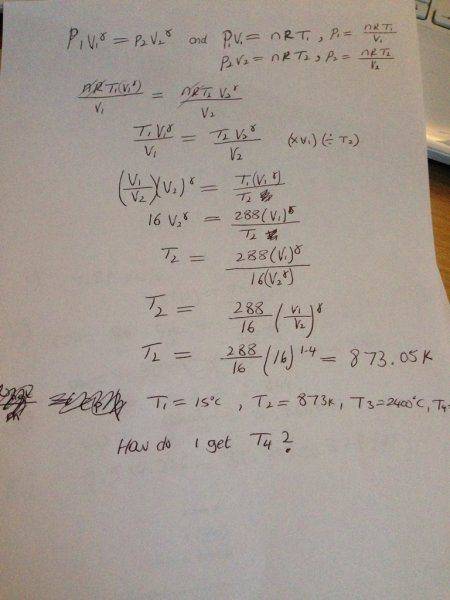 P₁V₁^γ = P₂V₂^γ and P₁V₁ = nRT₁, P₁ = nRT₁/V₁
P₂V₂ = nRT₂, P₂ = nRT₂/V₂
nRT₁(V₁^γ)/V₁ = nRT₂V₂^γ/V₂
T₁V₁^γ/V₁ = T₂V₂^γ/V₂ (×V₁)(÷T₂)
(V₁/V₂)(V₂)^γ = T₁(V₁^γ)/T₂
16 V₂^γ = 288(V₁)^γ/T₂
T₂ = 288(V₁)^γ/16(V₂^γ)
T₂ = 288/16 (V₁/V₂)^γ
T₂ = 288/16 (16)^1.4 = 873.05K
T₁ = 15°C, T₂ = 873K, T₃ = 2400°C, T₄=
How do I get T₄?